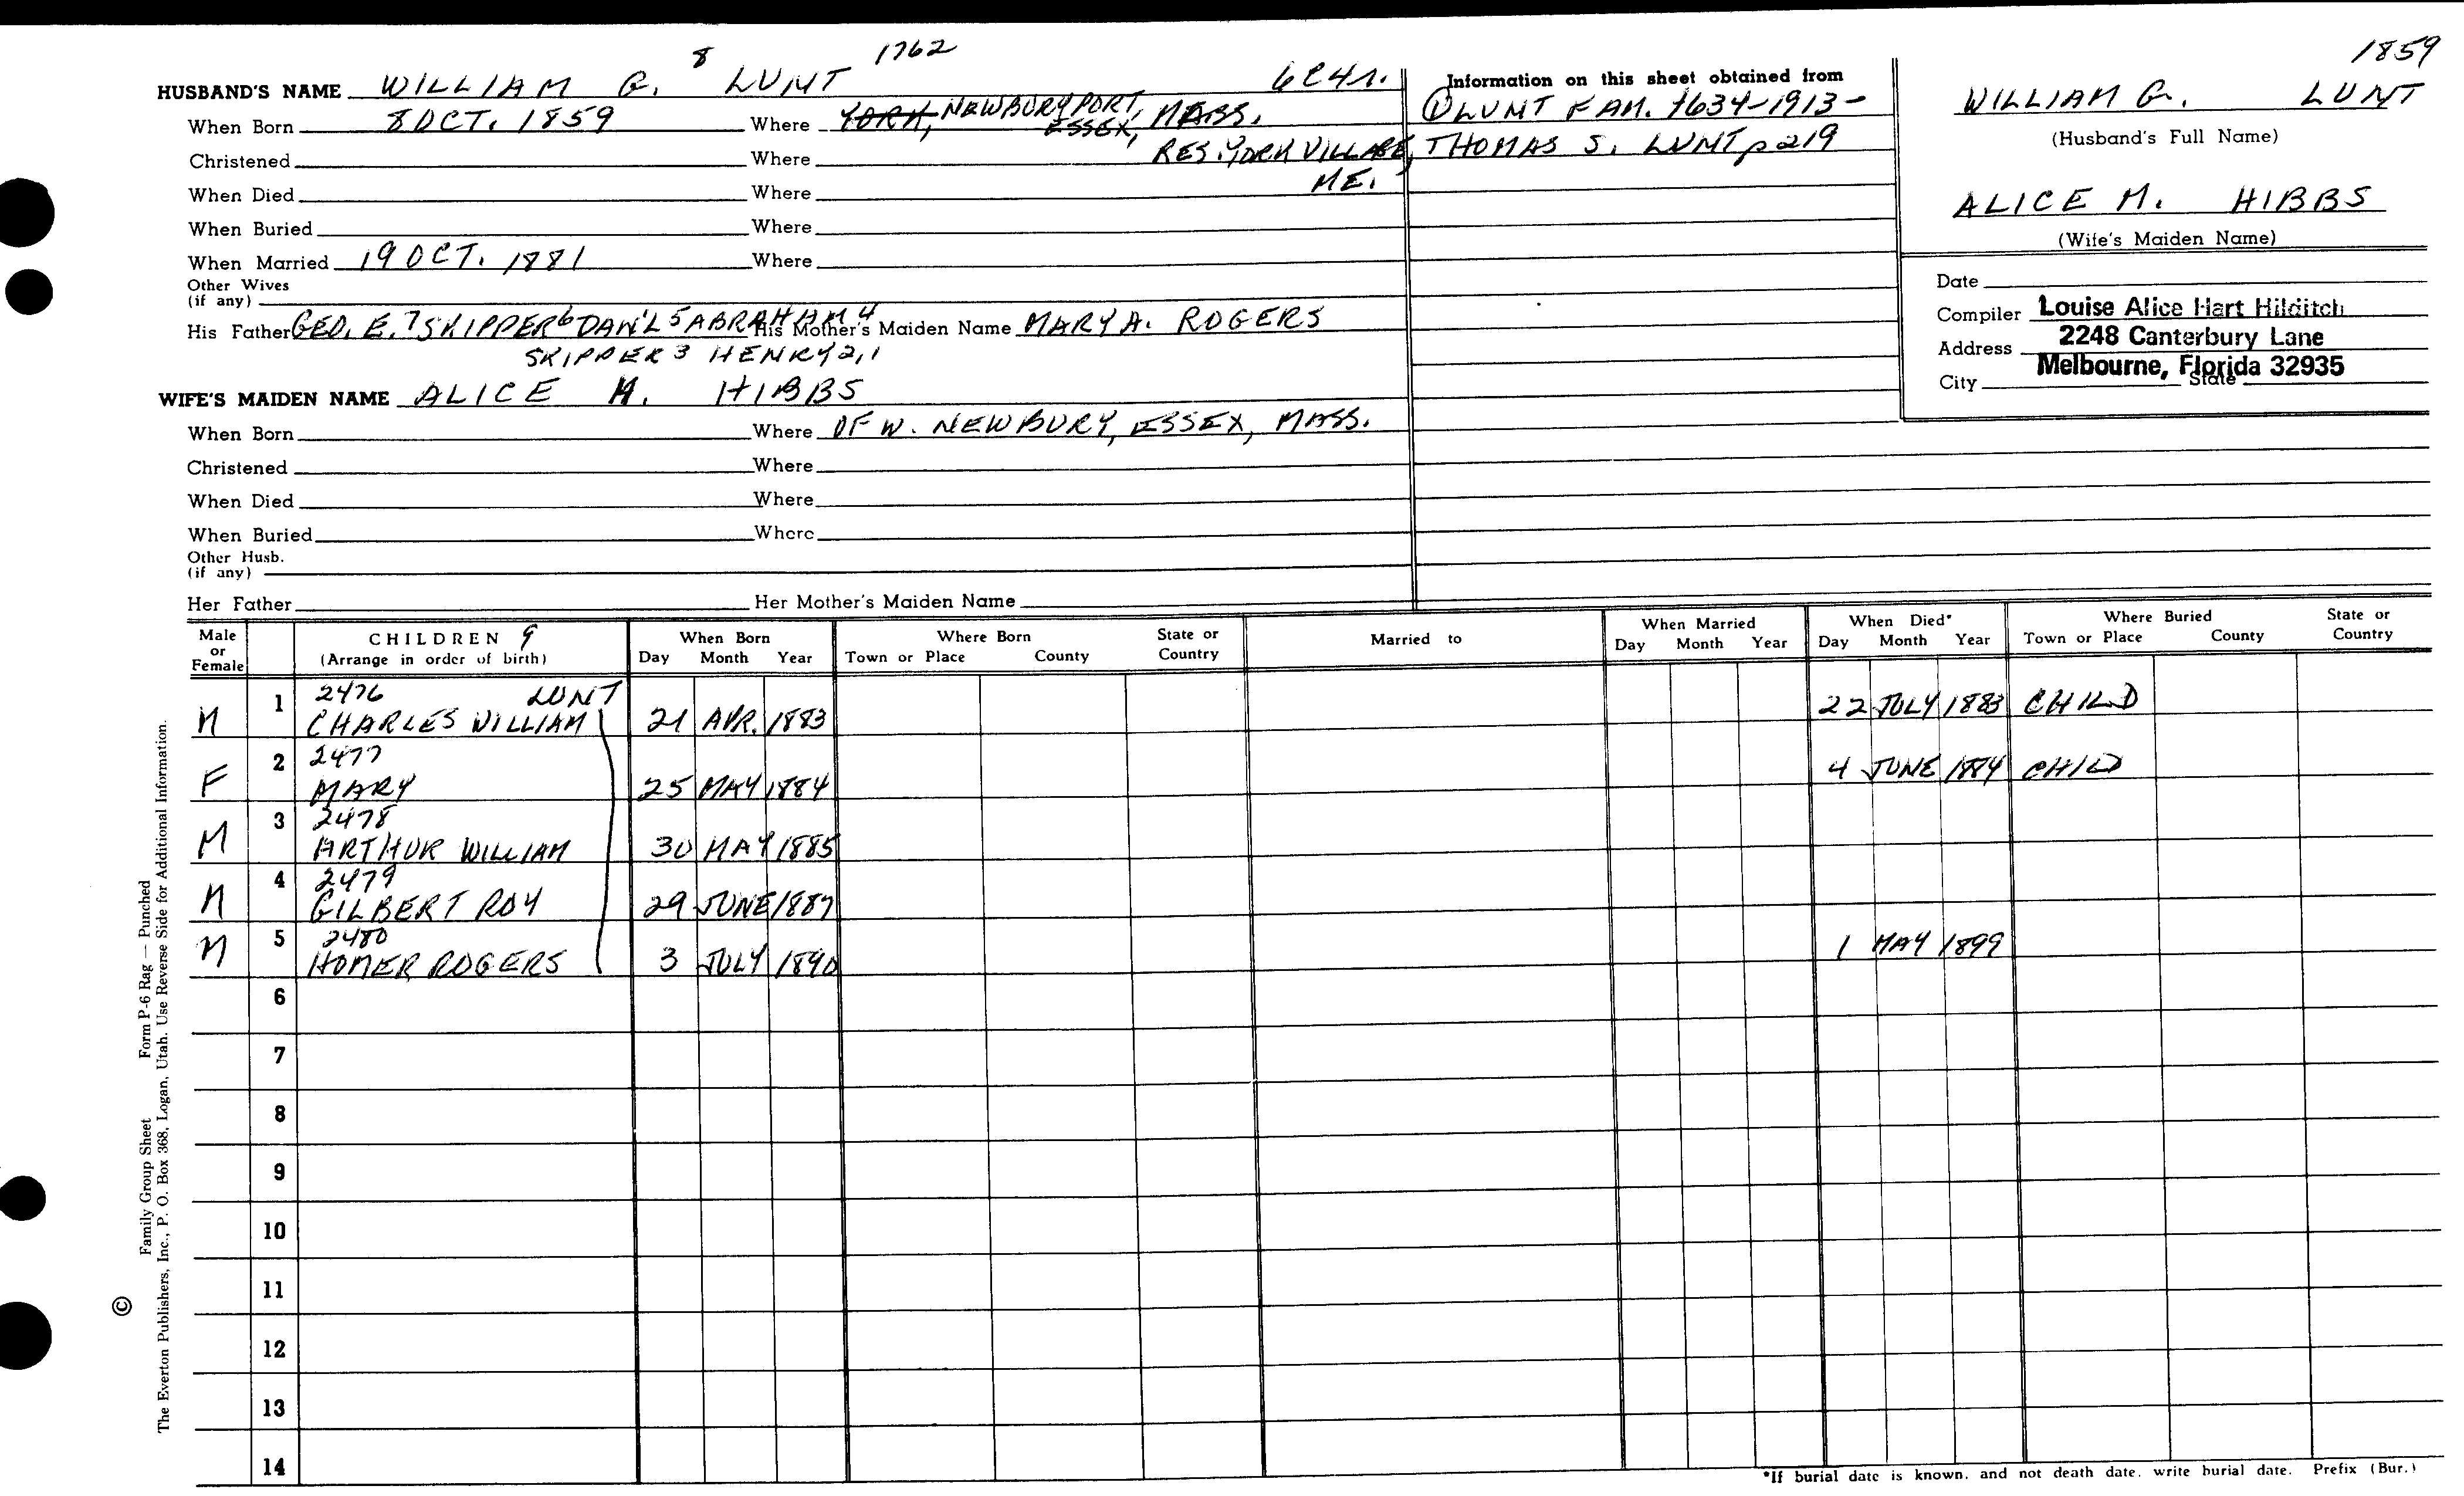 1859
8 1762
HUSBAND'S NAME WILLIAM G. LUNT
When Born 8 OCT. 1859 Where YORK, NEWBURYPORT, ESSEX, MASS.
Christened Where RES. YORK VILLAGE, ME.
When Died Where
When Buried Where
When Married 19 OCT. 1881 Where
Other Wives
(if any)
His Father GEO. E. 7 SKIPPER 6 DAN'L 5 ABRAHAM 4 His Mother's Maiden Name MARY A. ROGERS
SKIPPER 3 HENRY 2,1
WIFE'S MAIDEN NAME ALICE M. HIBBS
When Born Where OF W. NEWBURY, ESSEX, MASS.
Christened Where
When Died Where
When Buried Where
Other Husb.
(if any)
Her Father Her Mother's Maiden Name
Information on this sheet obtained from
① LUNT FAM. 1634-1913-
THOMAS S. LUNT p 219
WILLIAM G. LUNT
(Husband's Full Name)
ALICE M. HIBBS
(Wife's Maiden Name)
Date
Compiler Louise Alice Hart Hilditch
Address 2248 Canterbury Lane
Melbourne, Florida 32935
City State
Male or Female CHILDREN 9 (Arrange in order of birth) When Born Day Month Year Where Born Town or Place County State or Country Married to When Married Day Month Year When Died* Day Month Year Where Buried Town or Place County State or Country
2476 LUNT
M 1 CHARLES WILLIAM 21 APR. 1883 22 JULY 1883 CHILD
2477
F 2 MARY 25 MAY 1884 4 JUNE 1884 CHILD
2478
M 3 ARTHUR WILLIAM 30 MAY 1885
2479
M 4 GILBERT ROY 29 JUNE 1887
2480
M 5 HOMER ROGERS 3 JULY 1890 1 MAY 1899
6
7
8
9
10
11
12
13
14
*If burial date is known, and not death date, write burial date. Prefix (Bur.)
© Family Group Sheet Form P-6 Rag — Punched
The Everton Publishers, Inc., P. O. Box 368, Logan, Utah. Use Reverse Side for Additional Information.